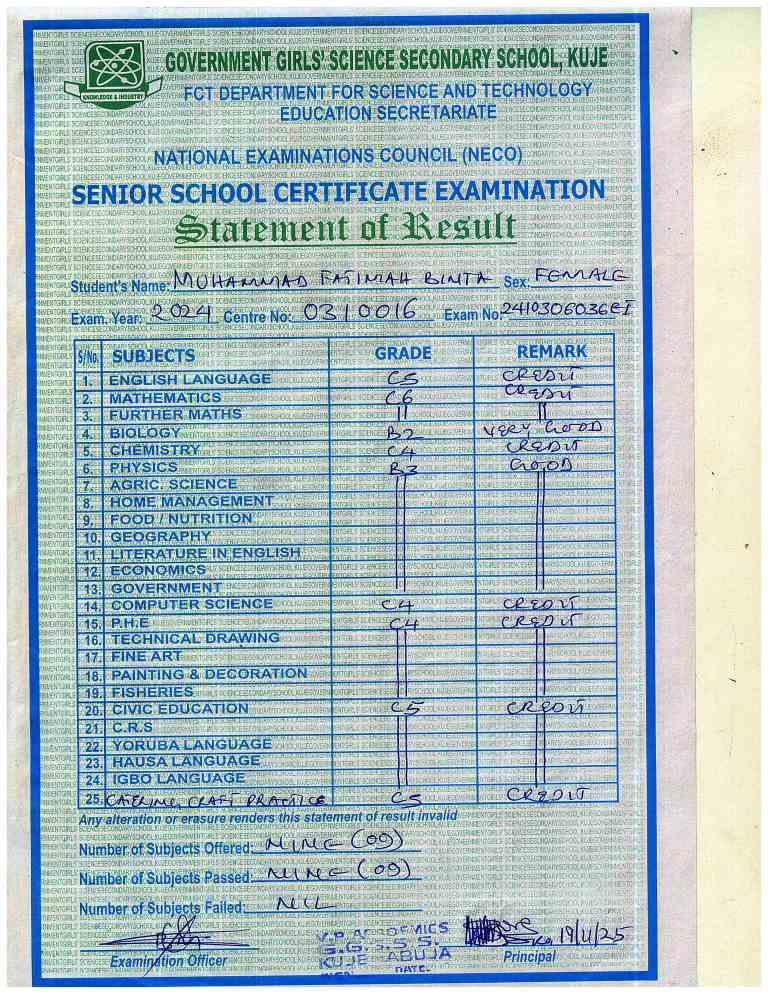 GOVERNMENT GIRLS' SCIENCE SECONDARY SCHOOL, KUJE
KNOWLEDGE & INDUSTRY
FCT DEPARTMENT FOR SCIENCE AND TECHNOLOGY
EDUCATION SECRETARIATE
NATIONAL EXAMINATIONS COUNCIL (NECO)
SENIOR SCHOOL CERTIFICATE EXAMINATION
Statement of Result
Student's Name: MUHAMMAD FATIMAH BINTA Sex: FEMALE
Exam. Year: 2024 Centre No: 0310016 Exam No: 2410306036EI
S/No. SUBJECTS GRADE REMARK
1. ENGLISH LANGUAGE C5 CREDIT
2. MATHEMATICS C6 CREDIT
3. FURTHER MATHS
4. BIOLOGY B2 VERY GOOD
5. CHEMISTRY C4 CREDIT
6. PHYSICS B3 GOOD
7. AGRIC. SCIENCE
8. HOME MANAGEMENT
9. FOOD / NUTRITION
10. GEOGRAPHY
11. LITERATURE IN ENGLISH
12. ECONOMICS
13. GOVERNMENT
14. COMPUTER SCIENCE C4 CREDIT
15. P.H.E C4 CREDIT
16. TECHNICAL DRAWING
17. FINE ART
18. PAINTING & DECORATION
19. FISHERIES
20. CIVIC EDUCATION C5 CREDIT
21. C.R.S
22. YORUBA LANGUAGE
23. HAUSA LANGUAGE
24. IGBO LANGUAGE
25. CATERING CRAFT PRACTICE C5 CREDIT
Any alteration or erasure renders this statement of result invalid
Number of Subjects Offered: NINE (09)
Number of Subjects Passed: NINE (09)
Number of Subjects Failed: NIL
V.P. ACADEMICS
G.G.S.S.S.
KUJE ABUJA
DATE.
19/11/25
Examination Officer Principal